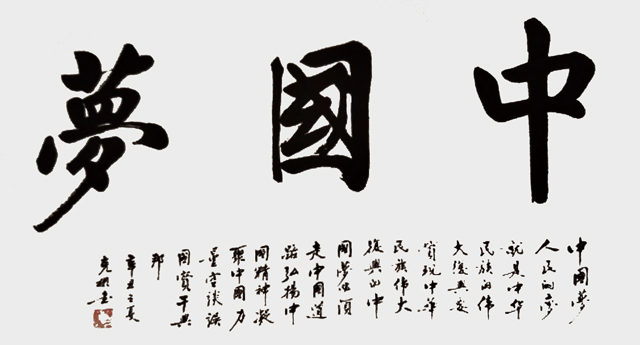 中國夢
中國夢
人民的夢
就是中华
民族的偉
大復興要
實現中華
民族偉大
復興的中
國夢必須
走中國道
路弘揚中
國精神凝
聚中國力
量空談誤
國實干興
邦
辛丑之夏